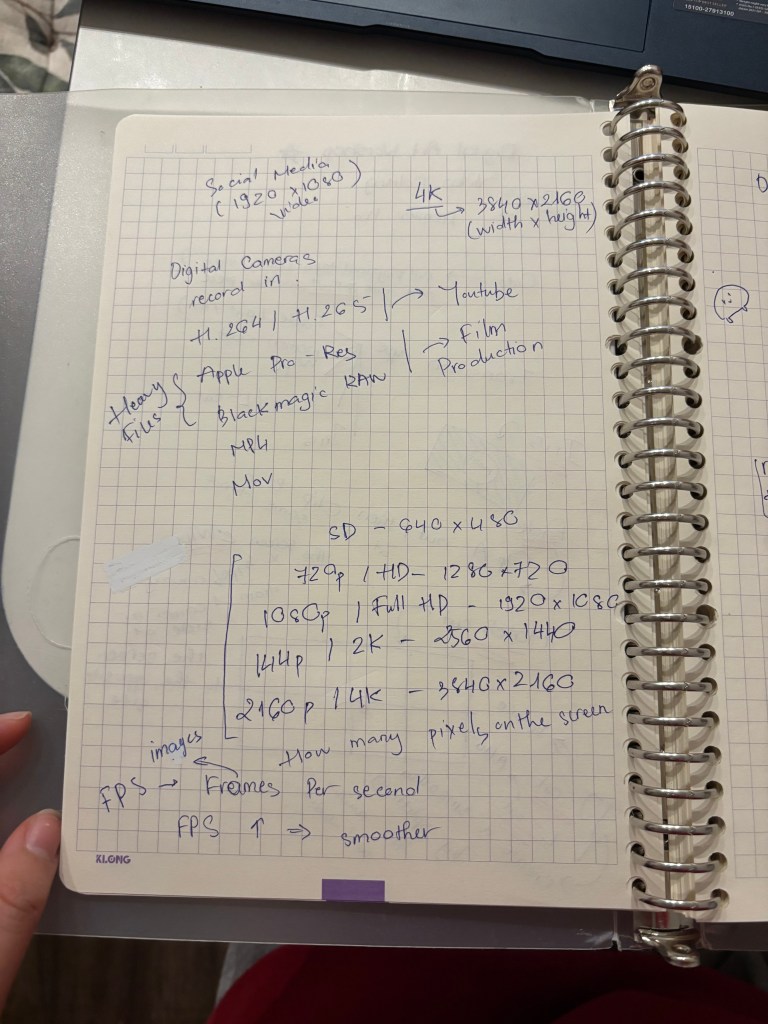 15100-27913100
Social Media
(1920 x 1080)
video
4K
→ 3840 x 2160
(width x height)
Digital Cameras
record in:
H.264 / H.265 | → Youtube
Heavy Files { Apple Pro-Res | → Film Production
Blackmagic RAW
MP4
Mov
SD - 640 x 480
720p / HD - 1280 x 720
1080p / Full HD - 1920 x 1080
144p / 2K - 2560 x 1440
2160p / 4K - 3840 x 2160
How many pixels on the screen
images
FPS → Frames Per second
FPS ↑ ⇒ smoother
KLONG